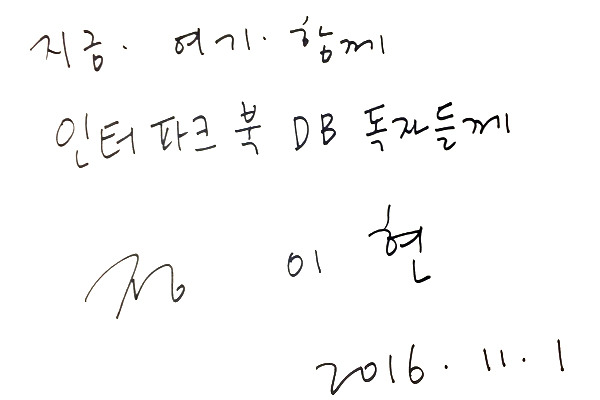 지금. 여기. 함께
인터파크 북DB 독자들께
정이현
2016. 11. 1